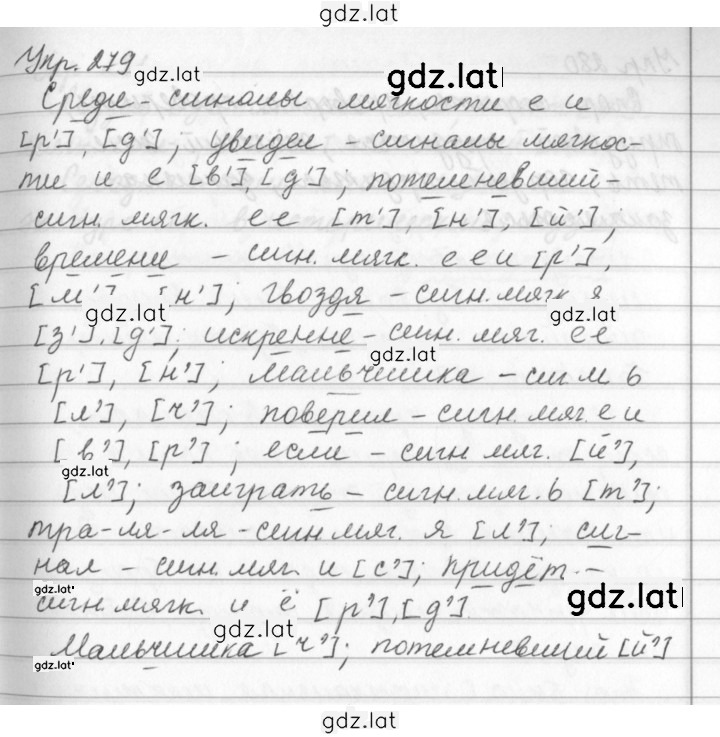 gdz.lat
Упр. 279
gdz.lat
gdz.lat
Среди - сигналы мягкости е и
[р'], [д']; увидел - сигналы мягкос-
ти и е [в'], [д'], потемневший-
сигн. мягк. е е [т'], [н'], [й'];
времени - сигн. мягк. е е и [р'],
[м'] [н']; гвоздя - сигн. мягк я
gdz.lat
gdz.lat
[з'], [д']; искренне - сигн. мяг. е е
gdz.lat
[р'], [н']; мальчишка - сиг м ь
[л'], [ч']; поверил - сигн. мяг. е и
[в'], [р']; если - сигн. мяг. [й'],
gdz.lat
[л']; заиграть - сигн. мяг. ь [т'];
тра-ля-ля - сигн. мяг. я [л']; сиг-
нал - сигн. мяг. и [с']; придёт -
gdz.lat
сигн. мягк. и ё [р'], [д'].
gdz.lat
gdz.lat
Мальчишка [ч']; потемневший [й']
gdz.lat
gdz.lat